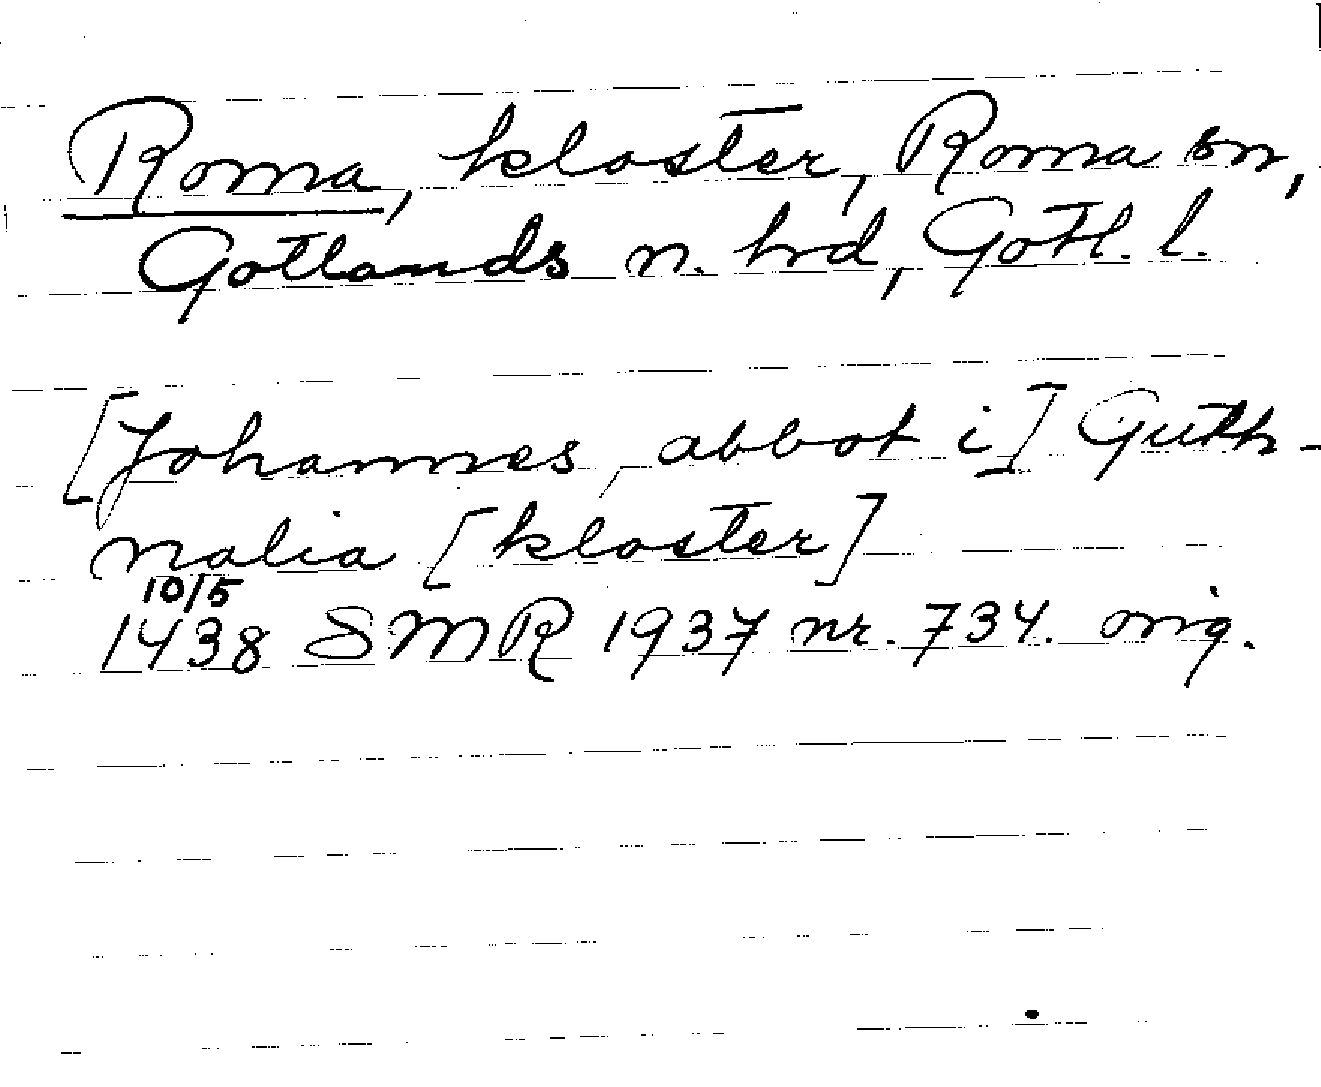 Roma, kloster, Roma sn,
Gotlands n. hrd, Gotl. l.
[Johannes, abbot i] Guth-
nalia [kloster]
10/5
1438 SMR 1937 nr. 734. orig.